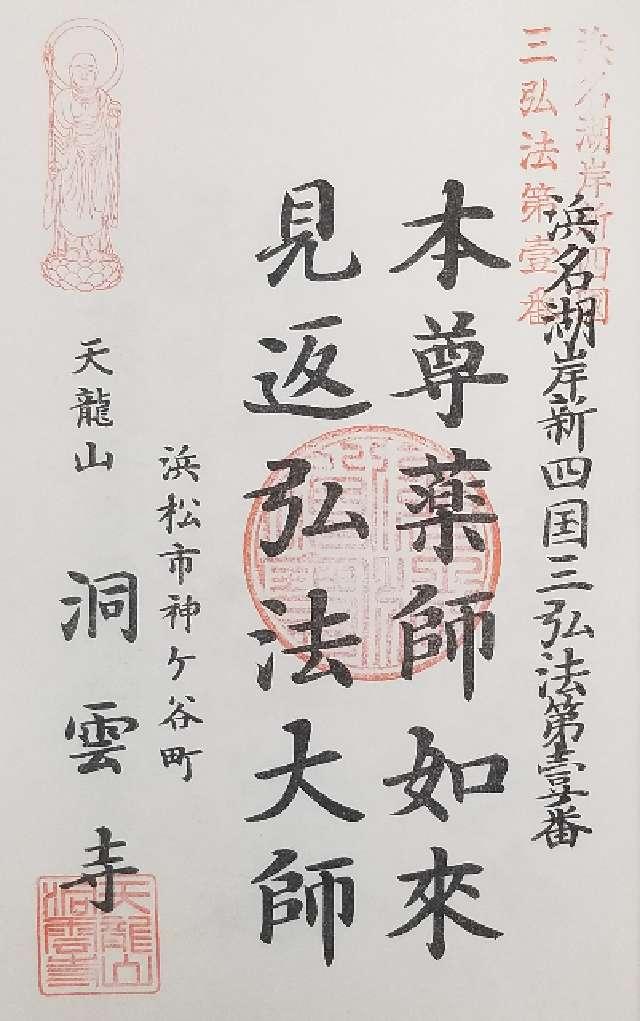 浜名湖岸新四国
三弘法第壹番
浜名湖岸新四国三弘法第壹番
本尊薬師如來
見返弘法大師
浜松市神ケ谷町
天龍山 洞雲寺
天龍山
洞雲寺